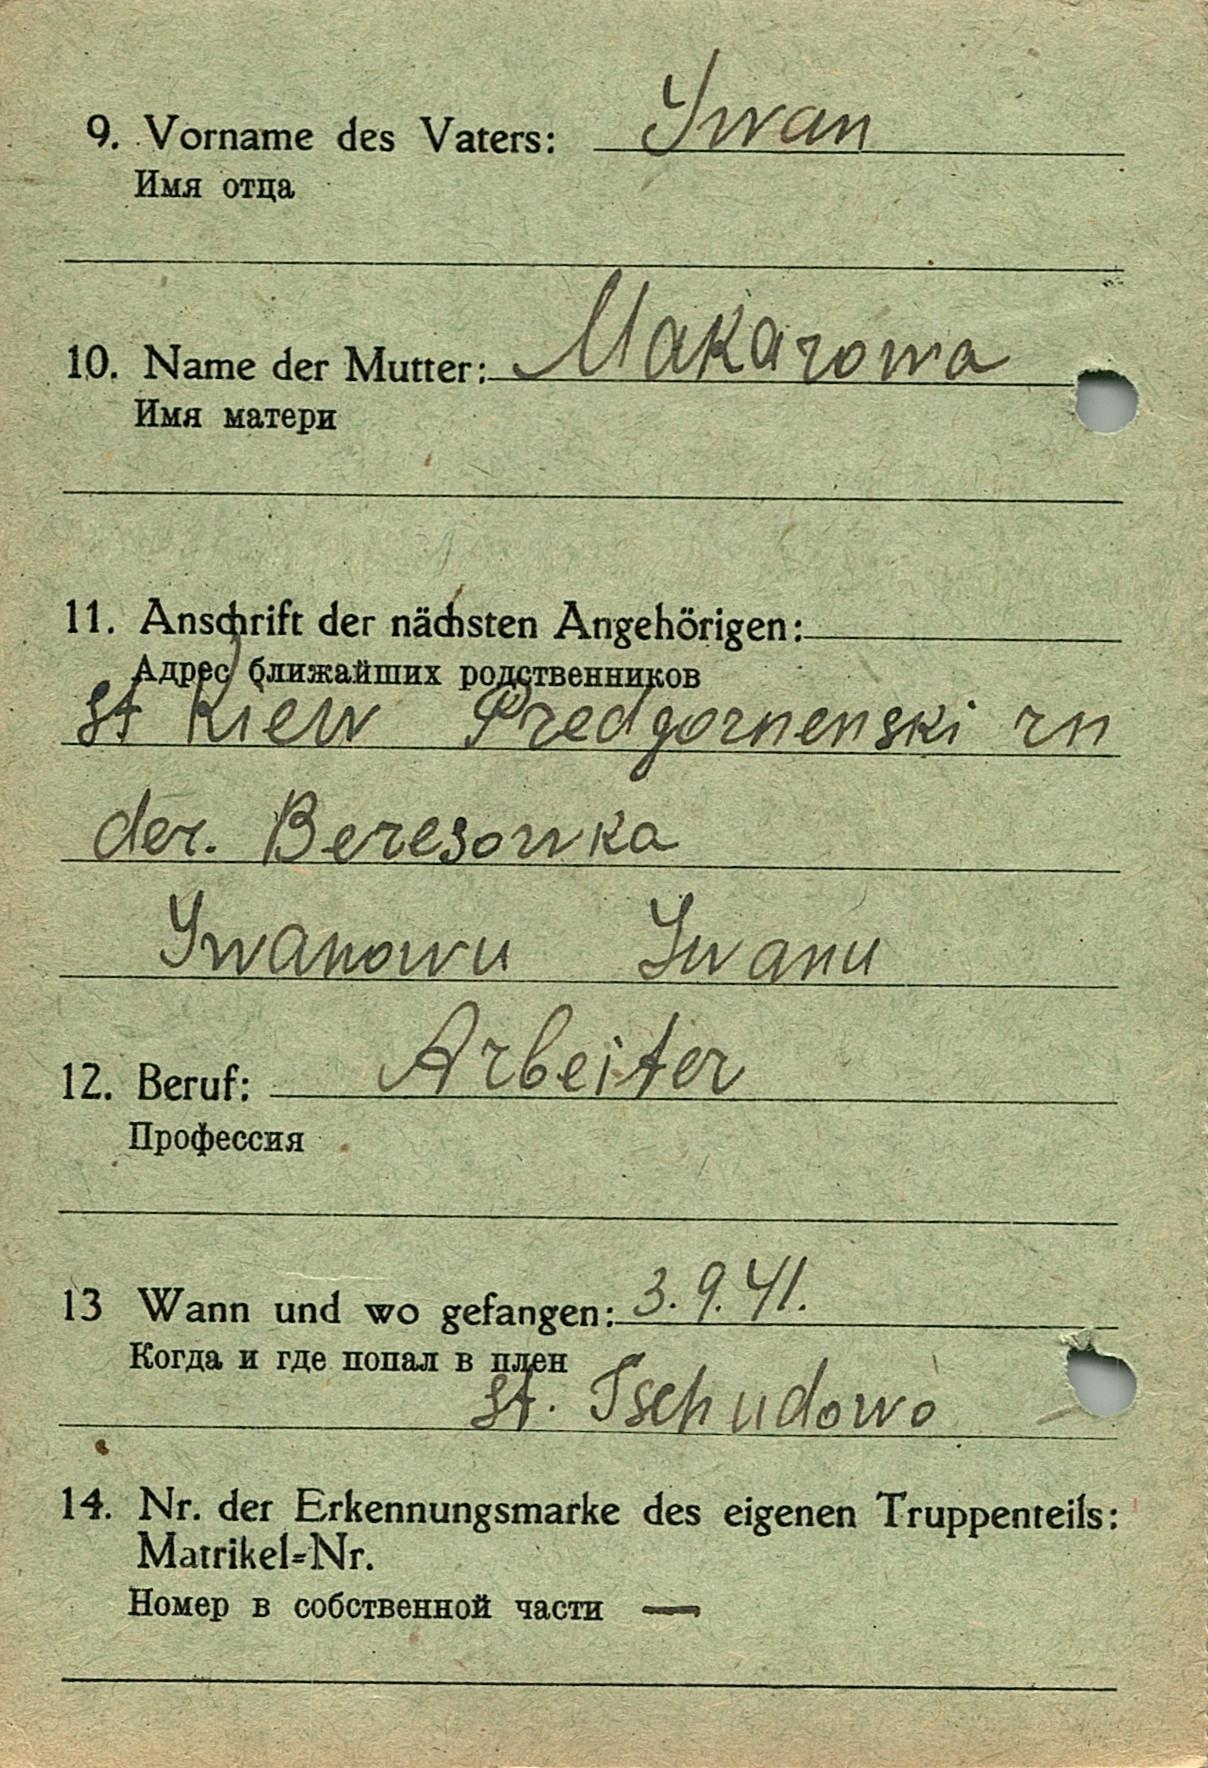 9. Vorname des Vaters: Iwan
Имя отца
10. Name der Mutter: Makarowa
Имя матери
11. Anschrift der nächsten Angehörigen:
Адрес ближайших родственников
st Kiew Predgornenski rn
der. Beresowka
Iwanowu Iwanu
12. Beruf: Arbeiter
Профессия
13 Wann und wo gefangen: 3.9.41.
Когда и где попал в плен
st. Tschudowo
14. Nr. der Erkennungsmarke des eigenen Truppenteils:
Matrikel=Nr.
Номер в собственной части —